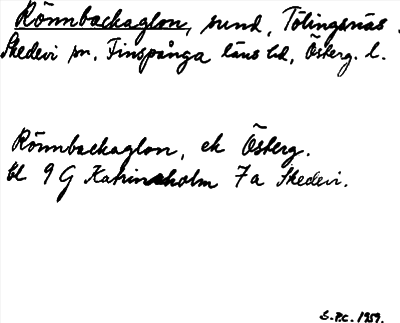 Rönnbackaglon, sund, Tolingsnäs.
Skedevi sn, Finspånga läns hd, Österg. l.
Rönnbackaglon, ek Österg.
bl 9 G Katrineholm 7a Skedevi.
S.P.C. 1959.